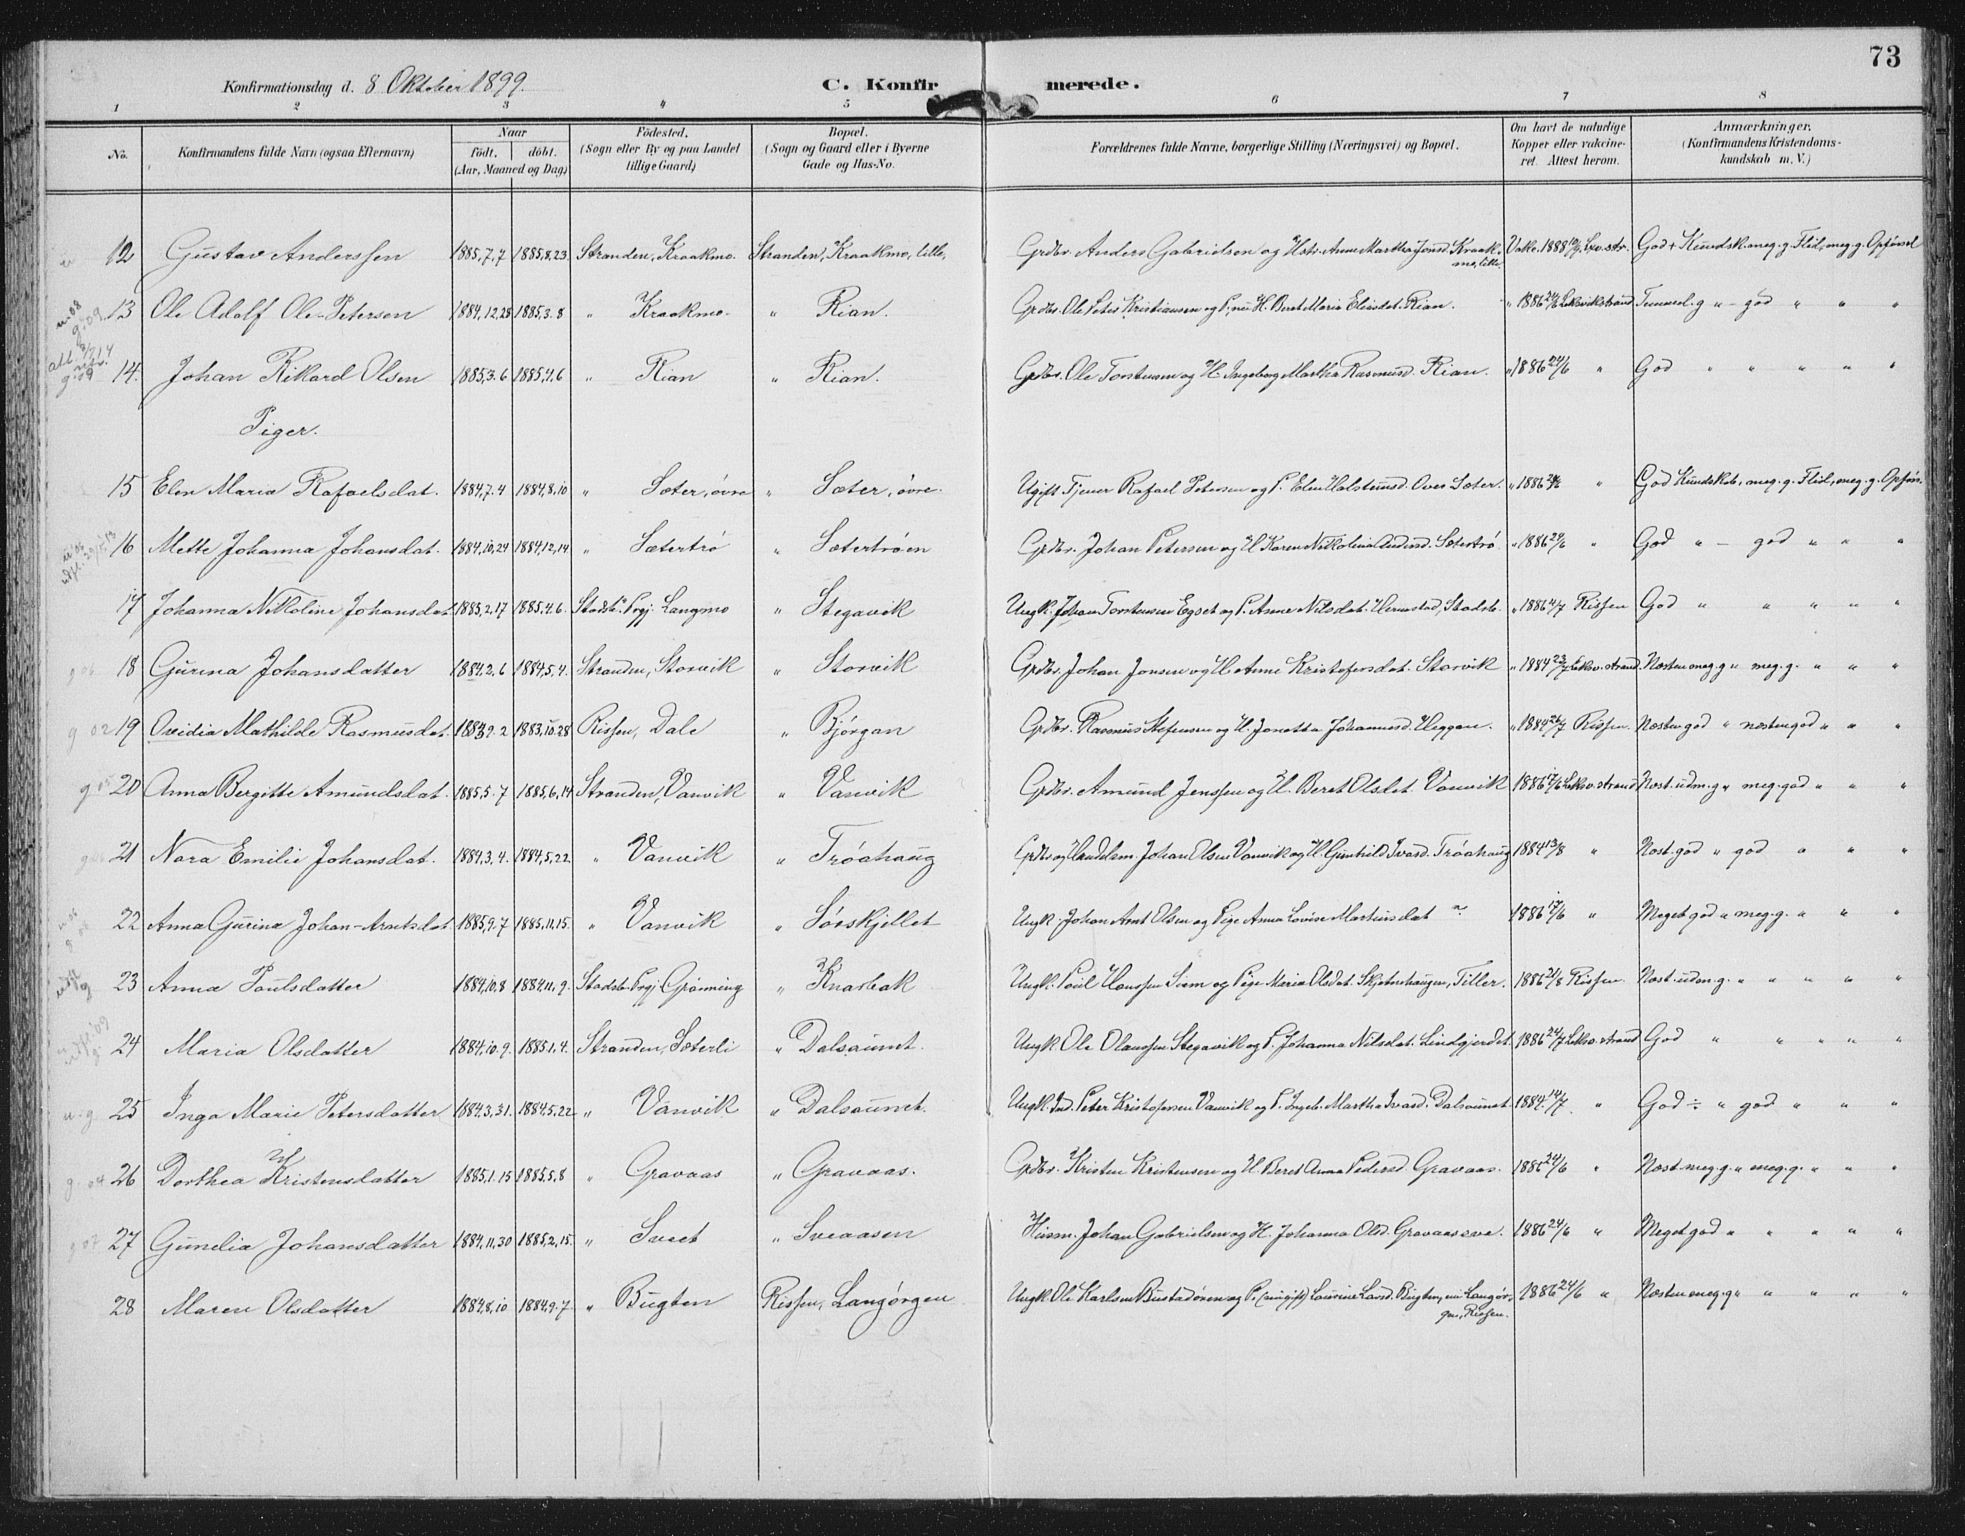 73
Konfirmationsdag d. 8 Oktober 1899.
C. Konfirmerede.
1 2 3 4 5 6 7 8
No. Konfirmandens fulde Navn (ogsaa Efternavn) Naar født, døbt. (Aar, Maaned og Dag) Fødested. (Sogn eller By og paa Landet tillige Gaard) Bopæl. (Sogn og Gaard eller i Byerne Gade og Hus-No. Forældrenes fulde Navne, borgerlige Stilling (Næringsvei) og Bopæl. Om havt de naturlige Kopper eller vaccineret. Attest herom. Anmærkninger. (Konfirmandens Kristendomskundskab m. V.)
12 Gustav Anderssen 1885,7,7 1885,8,23 Stranden, Kraakmo. Stranden, Kraakmo, lille, Grdbr. Anders Gabrielsen og Hstr. Anne Martha Jonsd. Kraakmo, lille. Vakc. 1888 God + Kundsk. meg. g. Flid, meg. g. Opførsel
13 Ole Adolf Ole-Petersen 1884,12,28 1885,3.8 " Kraakmo. " Rian. Grdbr. Ole Peter Kristiansen og H. Beret Maria Eliasdat. Rian. " 1886 24/6 Leksvikstrand Temmel. g " – god " " "
14. Johan Rikard Olsen 1885,3.6 1885,4,6 " Rian " Rian. Grdbr. Ole Torstensen og H. Ingeborg Martha Rasmusd. Rian. " 1886 24/6 " God " " " " "
Piger.
15 Elen Maria Rafaelsdat. 1884,7.4 1884,8,10 " Sæter, øvre " Sæter, øvre. Ugift Tjener Rafael Petersen og P. Elen Halstensd. Over Sæter. " 1886 24/6 " God Kundskab, meg. g. Flid, meg. g. Opførs.
16 Mette Johanna Johansdat. 1884,10,24 1884,12,14 " Sætertrø " Sætertrøen Grdbr. Johan Petersen og H Karen Nikolina Andersd. Sætertrø " 1886 24/6 " God " – god " " "
17 Johanna Nikoline Johansdat. 1885,2,17 1885,4.6. Stadsb. Prgj. Langmo " Stegavik Ungk. Johan Torstensen Egset og P. Anne Nilsdat. Hermstad, Stadsb. " 1886 4/7 Rissen God " " " " "
18 Gurina Johansdatter 1884,2,6 1884,5,4. Stranden, Storvik " Storvik Grdbr. Johan Jonsen og H. Anne Kristofersdat. Storvik " 1884 23/7 Leksv. strand. Næsten meg. g " meg. g. " " "
19 Ovidia Mathilde Rasmusdat. 1883,9.2 1883,10.28 Rissen, Dale " Bjørgan Grdbr. Rasmus Stefensen og H. Jonetta Johannesd. Heggan. " 1884 26/7 Rissen. Næsten god " næsten god " " "
20 Anna Bergitte Amundsdat. 1885,5.7 1885,6,14 Stranden, Vanvik " Vanvik Grdbr. Amund Jenssen og H. Beret Olsdat. Vanvik 1886 17/6 Leksv. strand Næst. udm. g " meg. god " " "
21 Nora Emilie Johansdat. 1884,3,4. 1884,5,22. " Vanvik " Trøahaug Grdbr. og Handelsm. Johan Olsen Vanvik og H. Gunhild Ivarsd. Trøahaug 1884 13/8 " Næst. god " god " " "
22 Anna Gurina Johan-Arntsdat. 1885,9.7 1885,11,15. " Vanvik " Sørskjellet Ungk. Johan Arnt Olsen og Pige Anna Lovise Martinsdat " 1886 17/6 " Meget god " meg. g. " " "
23 Anna Paulsdatter 1884,10,8 1884,11,9. Stadsb. Prgj. Grønning " Knarbak Ungk. Paul Hanssen Siem og Pige Maria Olsdat. Skjetnehaugen, Tiller. 1886 21/8 Rissen. Næst. udm. g. " " " " "
24 Maria Olsdatter 1884,10.9. 1885,1,4. Stranden, Sæterli " Dalsaunet. Ungk. Ole Olaussen Stegavik og P. Johanna Nilsdat. Lindgjerdet. 1886 24/7 Leksv. strand God " " " " "
u. g. 25 Inga Marie Petersdatter 1884,3,31. 1884,5,22 " Vanvik " Dalsaunet. Ungk. Ind. Peter Kristofersen Vanvik og P. Ingeb. Martha Ivarsd. Dalsaunet. 1884 14/7. " God ÷ " god " " "
g. 04 26 Dorthea Kristensdatter 1885,1.15 1885,5,8 " Gravaas " Gravaas. Grdbr. Kristen Kristensen og H Beret Anna Pedersd. Gravaas. 1886 24/6 " Næst. meg. g. " meg. g. " " "
g 07 27 Gunelia Johansdatter 1884,11,30 1885,2,15. " Sveet " Sveaasen Husm. Johan Gabrielsen og H. Johanna Olsd. Gravaassve. 1886 24/6 " Meget god " " " " "
28 Maren Olsdatter 1884,8,10 1884,9.7 " Bugten Rissen, Langørgen Ungk. Ole Karlsen Bustadøren og P. (nu gift) Laurine Larsd. Bugten, nu Langørgen, Rissen. 1886 24/6 " Næsten meg. g " " " " "